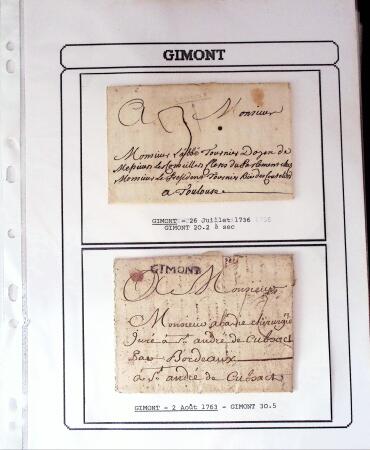 GIMONT
A Monsieur
Monsieur l'abbé Tournier Doyen de
Messieurs les Conseillers Clercs du Parlement chez
Monsieur le President Tournier Rue des
a Toulouse
GIMONT - 26 Juillet 1736
GIMONT 20.2 à sec
GIMONT
A Monsieur
Monsieur chirurgien
Juré à St. andré de Cubsact
Par Bordeaux
a St. andré de Cubsact
GIMONT - 2 Août 1763 - GIMONT 30.5